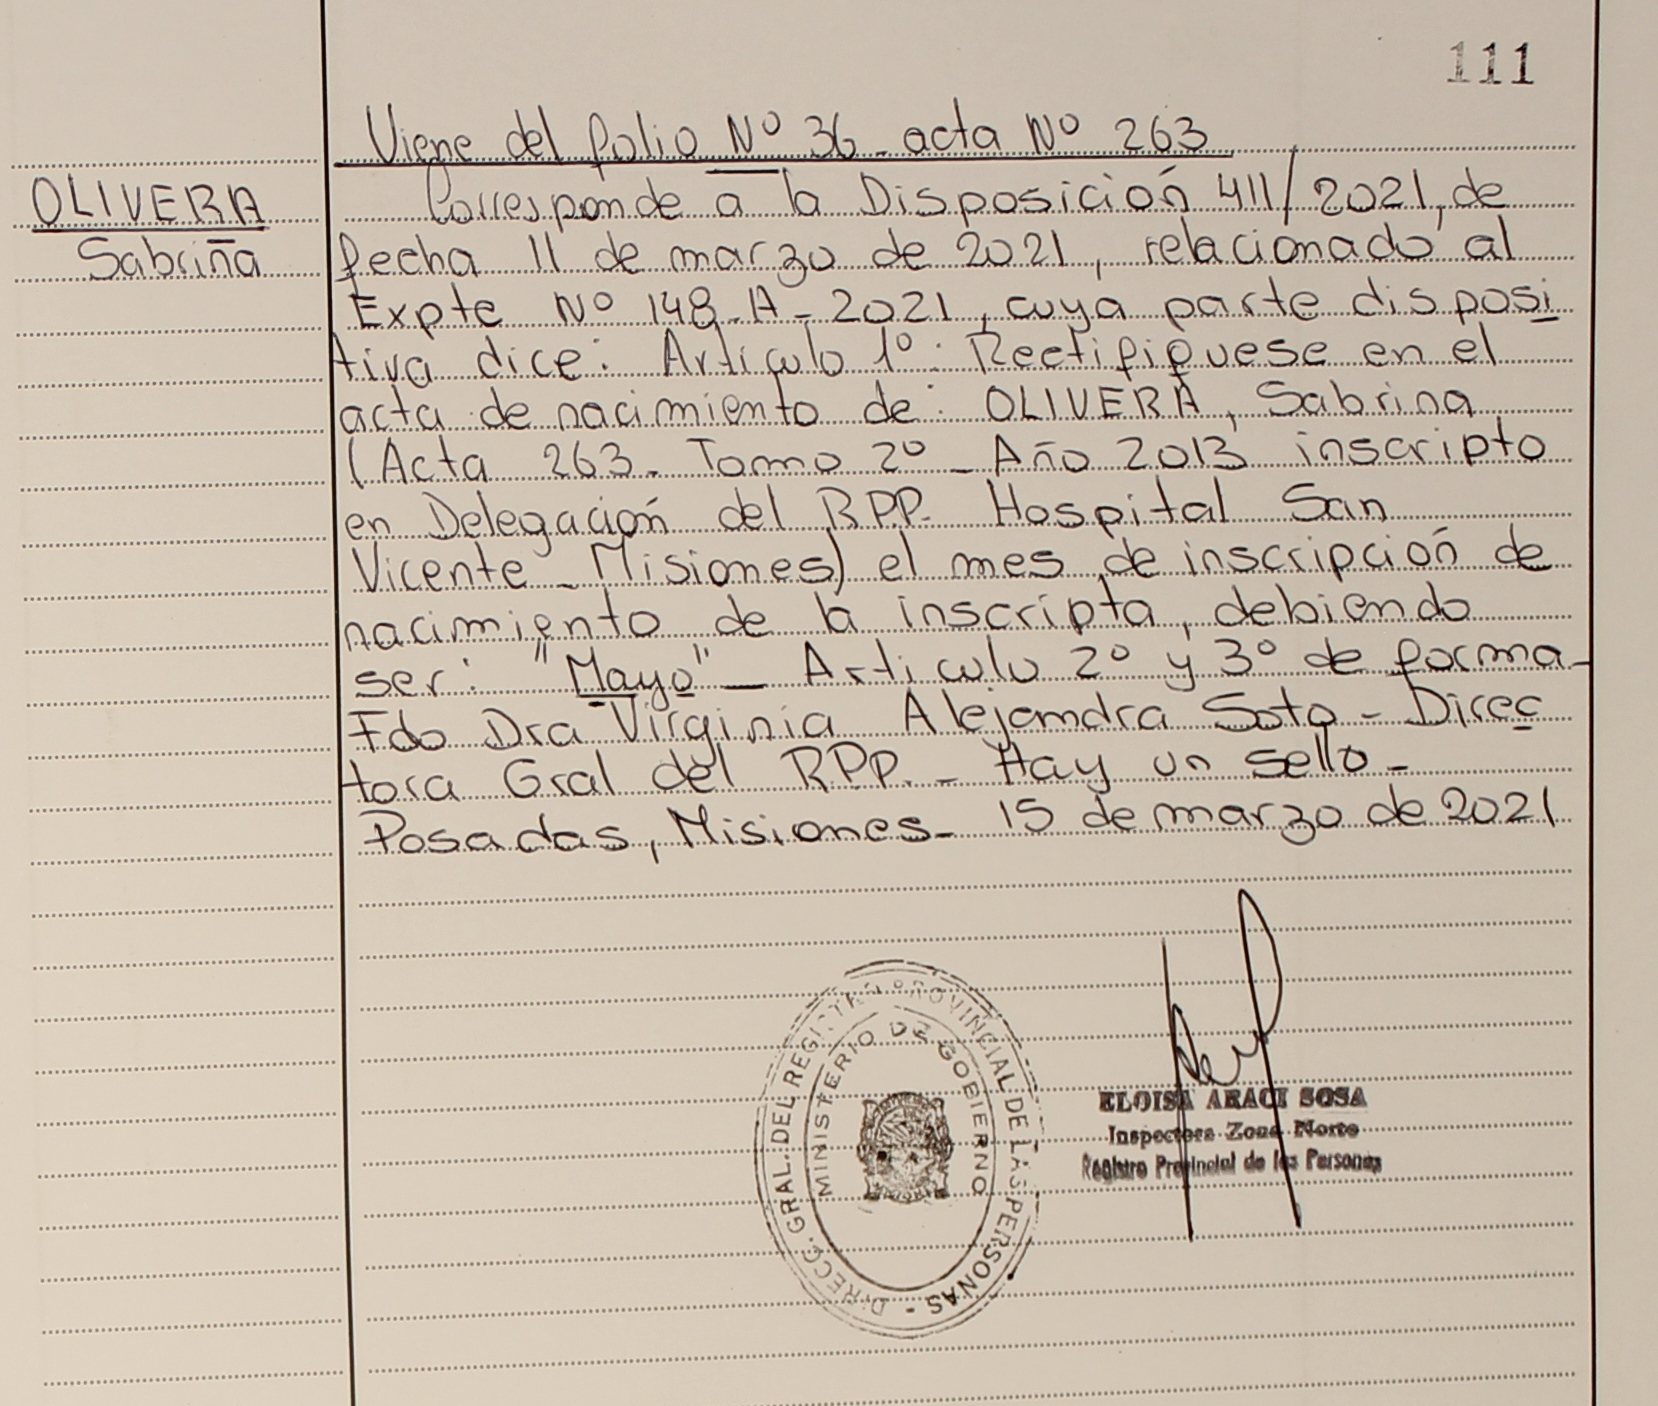 111
Viene del folio Nº 36 - acta Nº 263
OLIVERA
Sabrina
Corresponde a la Disposición 411/2021, de
fecha 11 de marzo de 2021, relacionado al
Expte Nº 148-A-2021, cuya parte disposi
tiva dice: Artículo 1º: Rectifiquese en el
acta de nacimiento de: OLIVERA, Sabrina
(Acta 263- Tomo 2º - Año 2013 inscripto
en Delegación del RPP- Hospital San
Vicente - Misiones) el mes de inscripción de
nacimiento de la inscripta, debiendo
ser: "Mayo" - Articulo 2º y 3º de forma-
Fdo Dra Virginia Alejandra Soto - Direc
tora Gral del RPP. - Hay un sello -
Posadas, Misiones- 15 de marzo de 2021
DIRECC. GRAL. DEL REGISTRO PROVINCIAL DE LAS PERSONAS -
MINISTERIO DE GOBIERNO
ELOISA ARACI SOSA
Inspectora Zona Norte
Registro Provincial de las Personas